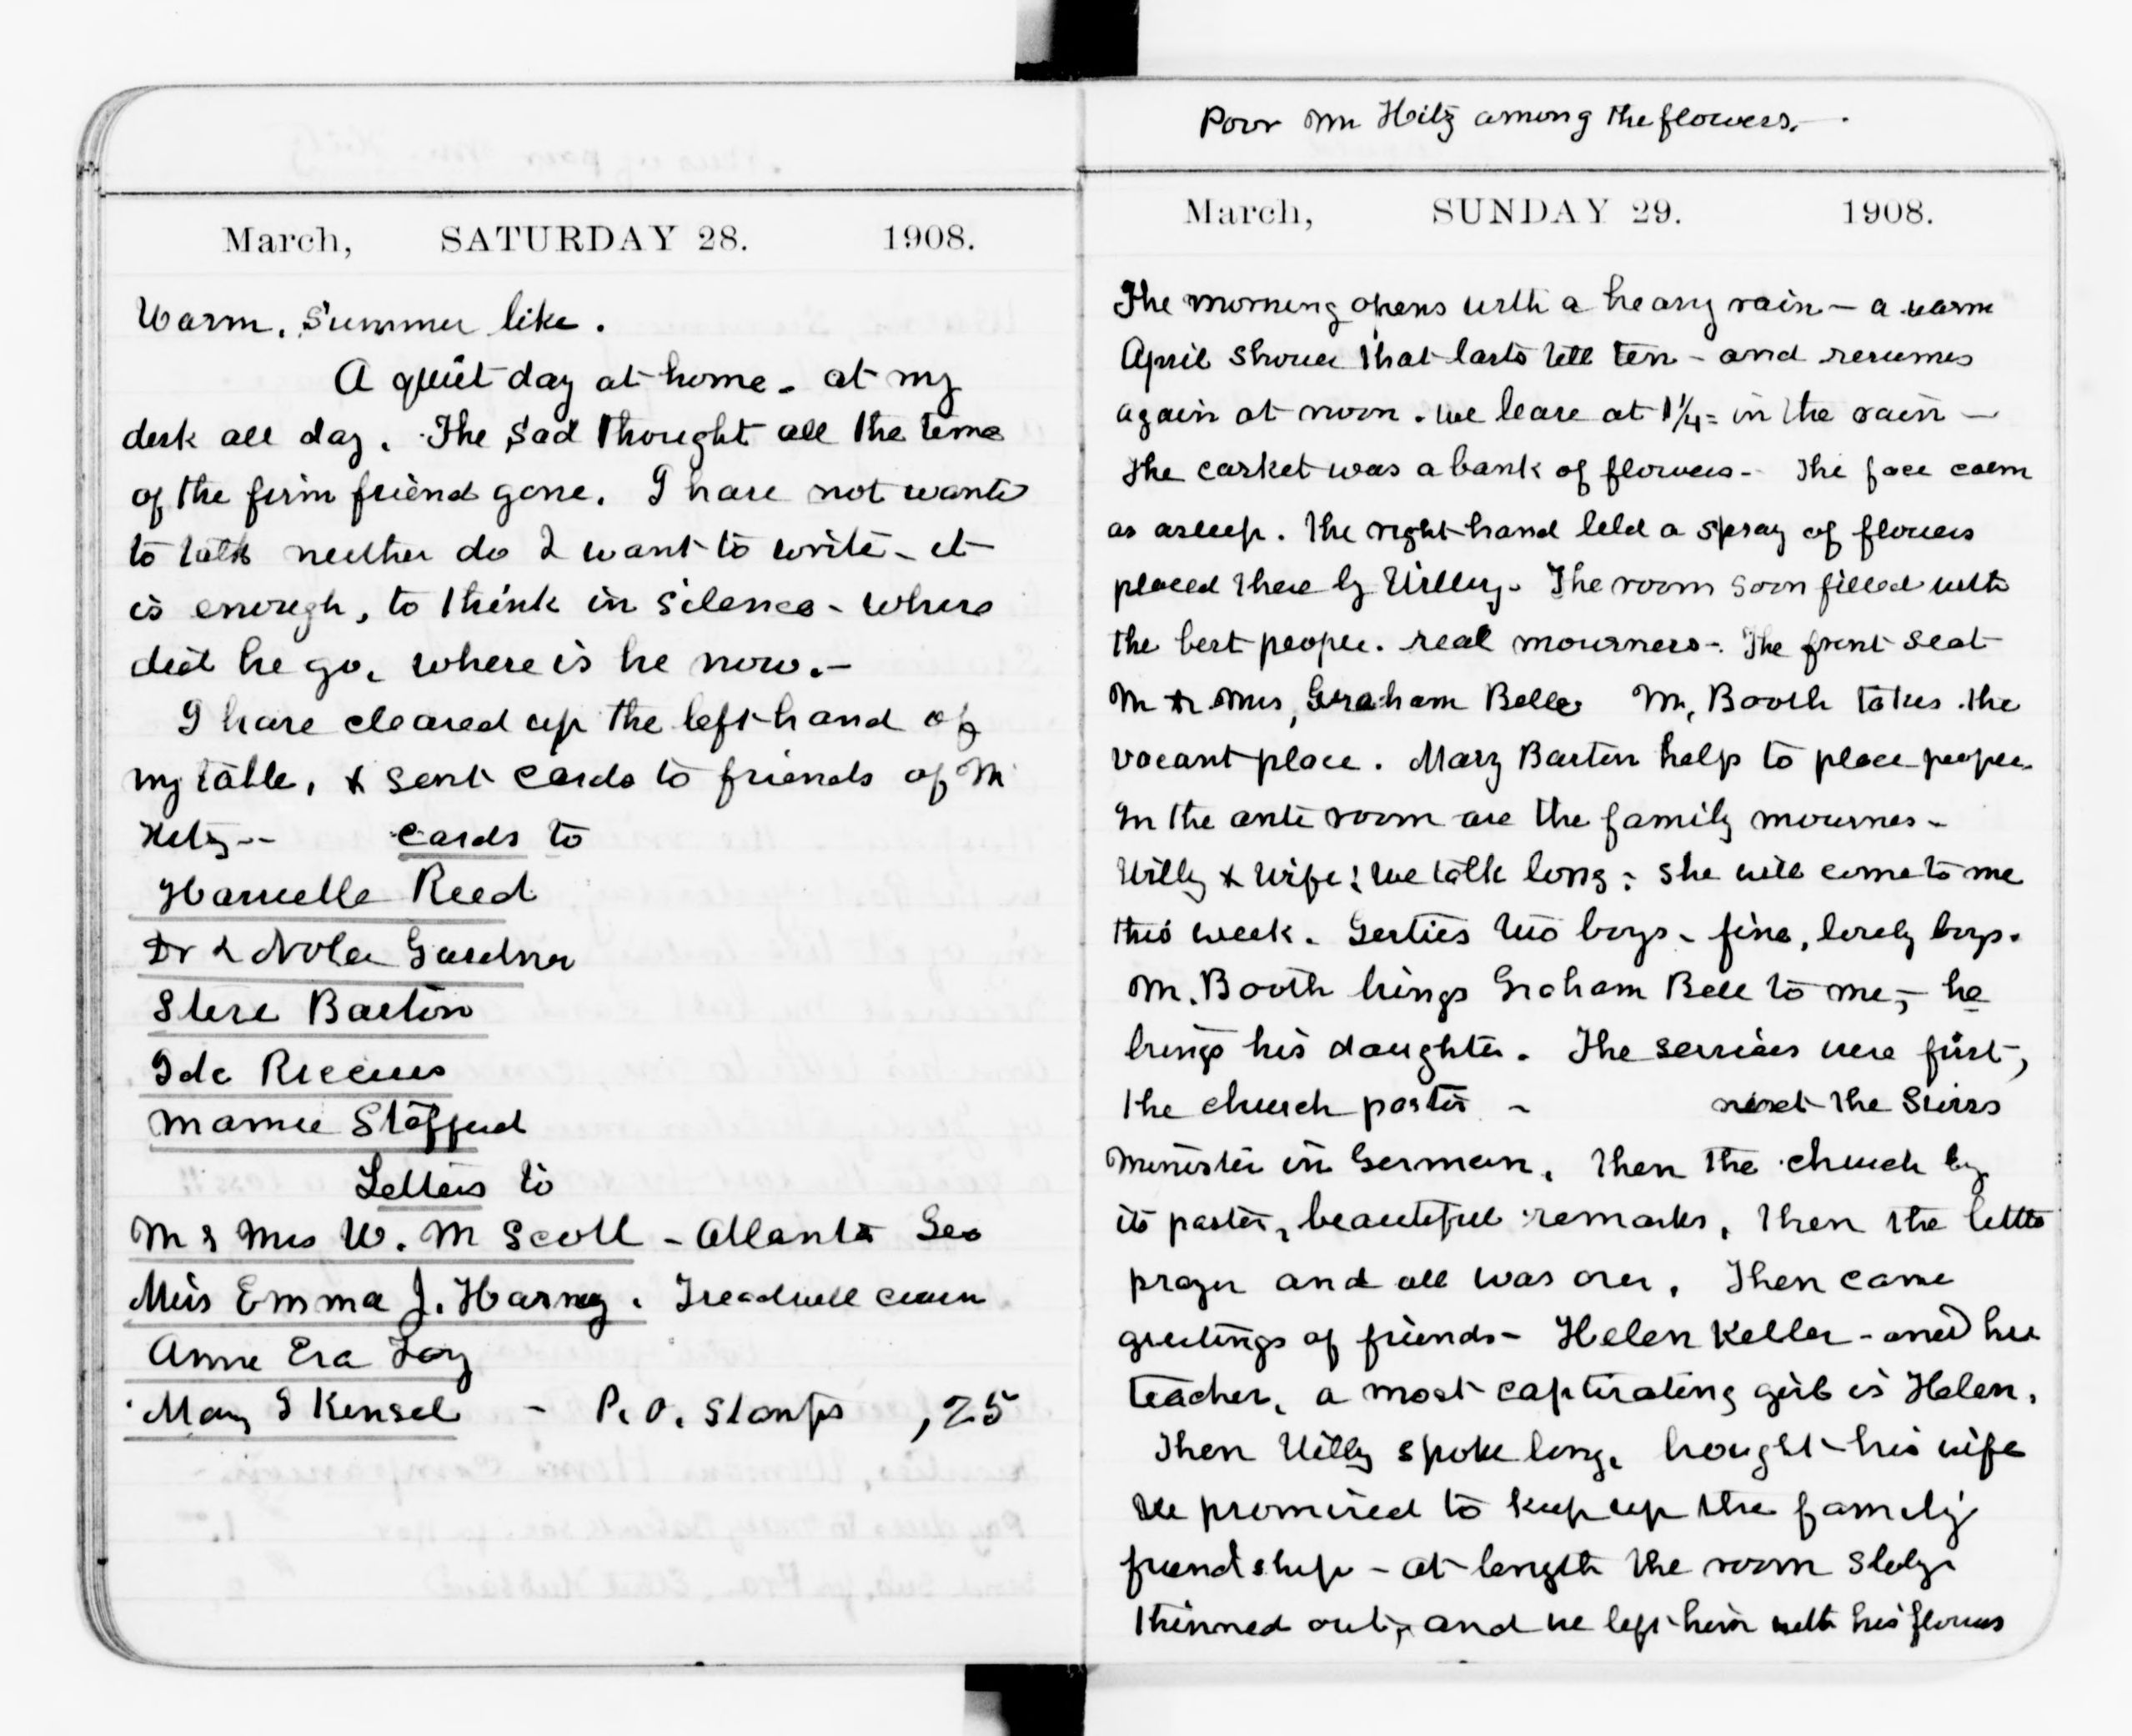 March, SATURDAY 28. 1908.
Warm, Summer like.
A quiet day at home - at my
desk all day. The sad thought all the time
of the firm friend gone. I have not wanted
to talk neither do I want to write - it
is enough, to think in silence - where
did he go, where is he now. -
I have cleared up the left hand of
my table, & sent cards to friends of Mr
Hitz -- cards to
Harriette Reed
Dr & Nola Gardner
Steve Barton
Ida Riccius
Mamie Stafford
Letters to
Mr & Mrs W. M Scott - Atlanta Geo
Miss Emma J. Harney. Treadwell
Anne Eva Fay
Mary E Kensel - P. O. Stamps ,25
Poor Mr Hitz among the flowers.
March, SUNDAY 29. 1908.
The morning opens with a heavy rain - a warm
April shower that lasts till ten - and resumes
again at noon. We leave at 1 1/4 = in the rain -
The casket was a bank of flowers - The face calm
as asleep. The right hand held a spray of flowers
placed there by Willy. The room soon filled with
the best people. real mourners - The front seat
Mr & Mrs, Graham Belle Mr, Booth takes the
vacant place. Mary Barton help to place people.
In the ante room are the family mourners -
Willy & wife; we talk long; she will come to me
this week. Gerties two boys - fine, lovely boys.
Mr. Booth brings Graham Bell to me, - he
brings his daughter. The services were first,
the church pastor - next the Swiss
Minister in German, Then the church by
its pastor, beautiful remarks, Then the little
prayer and all was over, Then came
greetings of friends - Helen Keller - and her
teacher, a most captivating girl is Helen.
Then Willy spoke long, brought his wife
We promised to keep up the family
friendship - at length the room slowly
thinned out, and we left him with his flowers